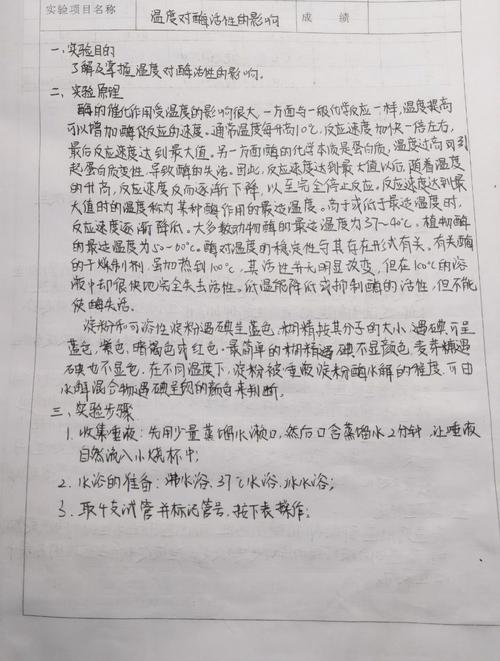 实验项目名称 温度对酶活性的影响 成 绩
一、实验目的
了解及掌握温度对酶活性的影响。
二、实验原理
酶的催化作用受温度的影响很大，一方面与一般化学反应一样，温度提高
可以增加酶促反应的速度。通常温度每升高10℃，反应速度加快一倍左右，
最后反应速度达到最大值。另一方面酶的化学本质是蛋白质，温度过高可引
起蛋白质变性，导致酶的失活。因此，反应速度达到最大值以后，随着温度
的升高，反应速度反而逐渐下降，以至完全停止反应。反应速度达到最
大值时的温度称为某种酶作用的最适温度。高于或低于最适温度时，
反应速度逐渐降低。大多数动物酶的最适温度为37~40℃。植物酶
的最适温度为50~60℃。酶对温度的稳定性与其存在形式有关。有关酶
的干燥制剂，虽加热到100℃，其活性并未明显改变，但在100℃的溶
液中却很快地完全失去活性。低温能降低或抑制酶的活性，但不能
使酶失活。
淀粉和可溶性淀粉遇碘呈蓝色，糊精按其分子的大小，遇碘可呈
蓝色，紫色，暗褐色或红色。最简单的糊精遇碘不显颜色，麦芽糖遇
碘也不显色，在不同温度下，淀粉被唾液淀粉酶水解的程度，可由
水解混合物遇碘呈现的颜色来判断。
三、实验步骤
1. 收集唾液：先用少量蒸馏水漱口，然后口含蒸馏水2分钟，让唾液
自然流入小烧杯中；
2. 水浴的准备：沸水浴、37℃水浴、冰水浴；
3. 取4支试管并标记管号，按下表操作；